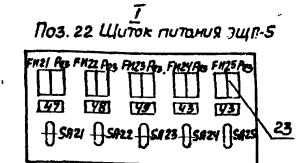 I
Поз. 22 Щиток питания ЭЩП-5
FH21 Рез FH22 Рез FH23 Рез. FH24 Рез FH25 Рез
47 48 49 43 43
23
SA21 SA22 SA23 SA24 SA25